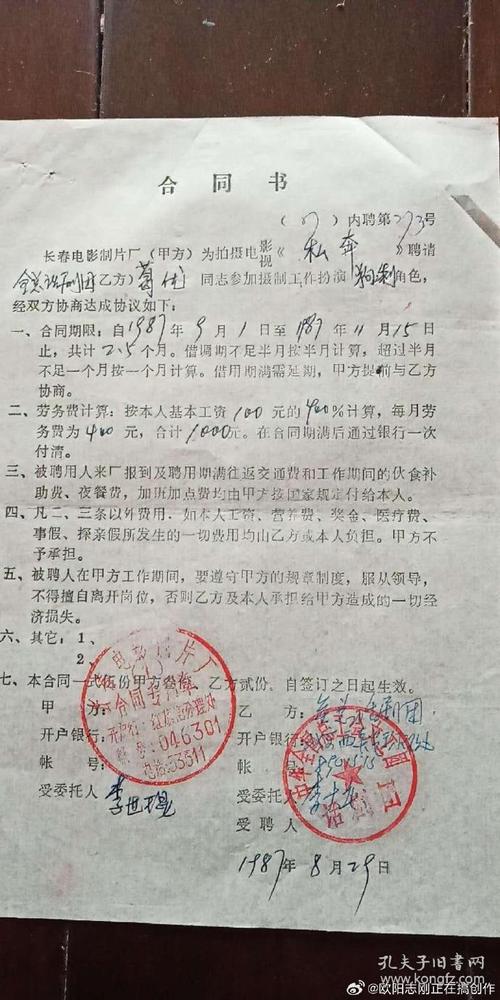 合同书
(87)内聘第273号
长春电影制片厂(甲方)为拍摄电影视《私奔》聘请
全总话剧团(乙方)葛优同志参加摄制工作扮演狗剩角色,
经双方协商达成协议如下:
一、合同期限:自1987年9月1日至1987年11月15日
止,共计2.5个月。借调期不足半月按半月计算,超过半月
不足一个月按一个月计算。借用期满需延期,甲方提前与乙方
协商。
二、劳务费计算:按本人基本工资100元的400%计算,每月劳
务费为400元,合计1000元。在合同期满后通过银行一次
付清。
三、被聘用人来厂报到及聘用期满往返交通费和工作期间的伙食补
助费、夜餐费,加班加点费均由甲方按国家规定付给本人。
四、凡二、三条以外费用,如本人工资、营养费、奖金、医疗费、
事假、探亲假所发生的一切费用均由乙方或本人负担。甲方不
予承担。
五、被聘人在甲方工作期间,要遵守甲方的规章制度,服从领导,
不得擅自离开岗位,否则乙方及本人承担给甲方造成的一切经
济损失。
六、其它:1、
2、
七、本合同一式伍份甲方叁份,乙方贰份。自签订之日起生效。
甲方: 乙方:全总话剧团
开户银行: 开户银行:
帐号: 帐号:
受委托人 李世琨 受委托人
受聘人
电影制片厂
合同专用章
046301
电话:53511
中华全国总工会
话剧团
1987年8月29日
孔夫子旧书网
@欧阳志刚正在搞创作